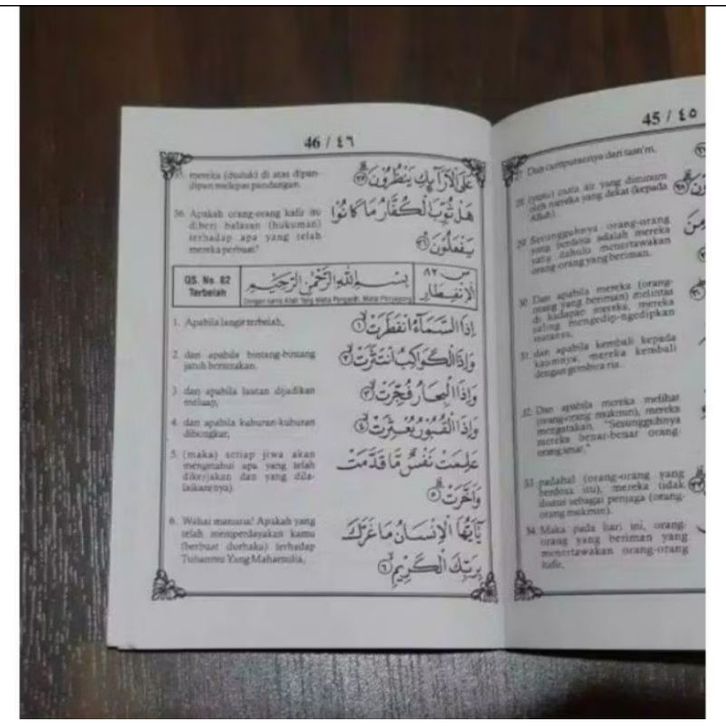 45 / ٤٥
27 Dan campurannya dari tasn'm,
28 (yaitu) mata air yang diminum
oleh mereka yang dekat (kepada
Allah).
29 Sesungguhnya orang-orang
yang berdosa adalah mereka
yang dahulu menertawakan
orang-orang yang beriman.
30 Dan apabila mereka (orang-
orang yang beriman) melintas
di hadapan mereka, mereka
saling mengedip-ngedipkan
matanya,
31 dan apabila kembali kepada
kaumnya, mereka kembali
dengan gembira ria.
32 Dan apabila mereka melihat
(orang-orang mukmin), mereka
mengatakan, "Sesungguhnya
mereka benar-benar orang-
orang sesat,"
33 padahal (orang-orang yang
berdosa itu), mereka tidak
diutus sebagai penjaga (orang-
orang mukmin).
34 Maka pada hari ini, orang-
orang yang beriman yang
menertawakan orang-orang
kafir,
46 / ٤٦
35 mereka (duduk) di atas dipan-
dipan melepas pandangan.
عَلَى الْأَرَائِكِ يَنْظُرُونَ ٣٥
36. Apakah orang-orang kafir itu
diberi balasan (hukuman)
terhadap apa yang telah
mereka perbuat?
هَلْ ثُوِّبَ الْكُفَّارُ مَا كَانُوا
يَفْعَلُونَ ٣٦
QS. No. 82
Terbelah
بِسْمِ اللَّهِ الرَّحْمَٰنِ الرَّحِيمِ
Dengan nama Allah Yang Maha Pengasih, Maha Penyayang
س ٨٢
الْإِنْفِطَار
1. Apabila langit terbelah,
إِذَا السَّمَاءُ انْفَطَرَتْ ١
2. dan apabila bintang-bintang
jatuh berserakan,
وَإِذَا الْكَوَاكِبُ انْتَثَرَتْ ٢
3. dan apabila lautan dijadikan
meluap,
وَإِذَا الْبِحَارُ فُجِّرَتْ ٣
4. dan apabila kuburan-kuburan
dibongkar,
وَإِذَا الْقُبُورُ بُعْثِرَتْ ٤
5. (maka) setiap jiwa akan
mengetahui apa yang telah
dikerjakan dan yang dila-
laikan(nya).
عَلِمَتْ نَفْسٌ مَّا قَدَّمَتْ
وَأَخَّرَتْ ٥
6. Wahai manusia! Apakah yang
telah memperdayakan kamu
(berbuat durhaka) terhadap
Tuhanmu Yang Mahamulia,
يَا أَيُّهَا الْإِنْسَانُ مَا غَرَّكَ
بِرَبِّكَ الْكَرِيمِ ٦